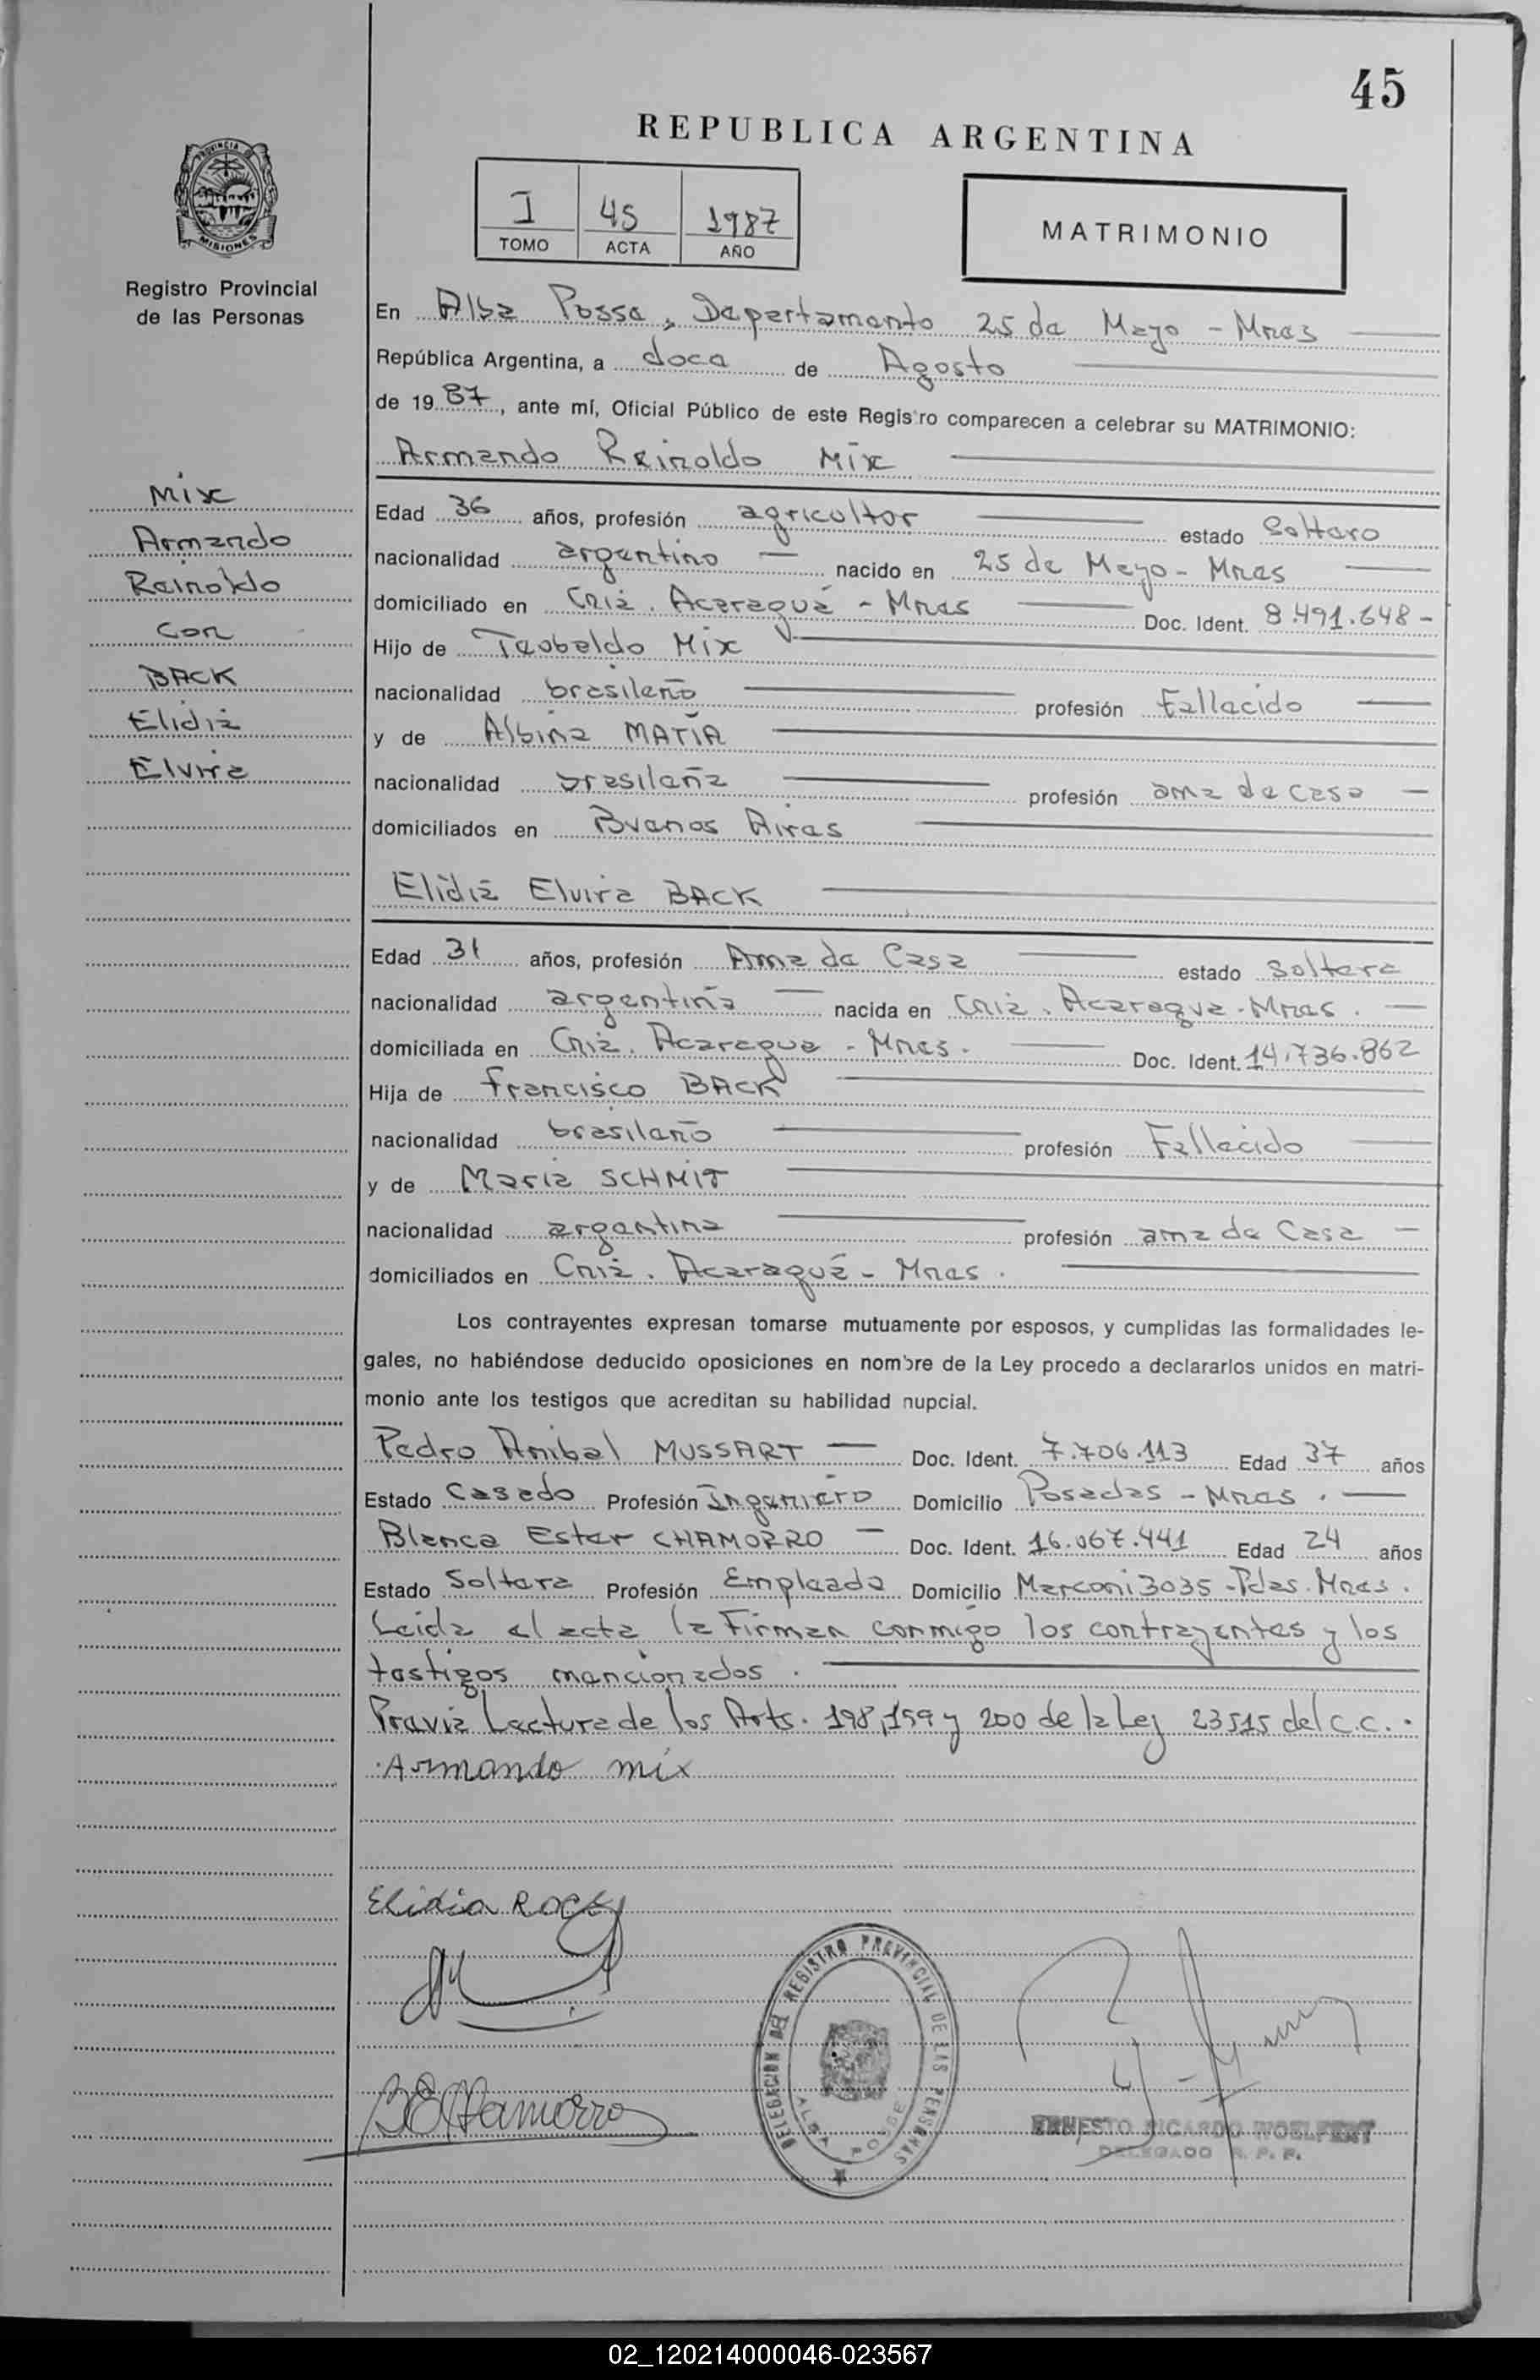 45
REPUBLICA ARGENTINA
I 45 1987
TOMO ACTA AÑO
MATRIMONIO
PROVINCIA DE
MISIONES
Registro Provincial
de las Personas
Mix
Armando
Reinoldo
con
BACK
Elidia
Elvira
En Alba Posse, Departamento 25 de Mayo - Mnes
República Argentina, a doce de Agosto
de 19 87, ante mí, Oficial Público de este Registro comparecen a celebrar su MATRIMONIO:
Armando Reinoldo Mix
Edad 36 años, profesión agricultor estado Soltero
nacionalidad argentino nacido en 25 de Mayo - Mnes
domiciliado en Cnia. Acaraguá - Mnes Doc. Ident. 8.491.648 -
Hijo de Teobaldo Mix
nacionalidad brasileño profesión Fallecido
y de Albina MATÍA
nacionalidad brasileña profesión ama de casa
domiciliados en Buenos Aires
Elidia Elvira BACK
Edad 31 años, profesión Ama de Casa estado Soltera
nacionalidad argentina nacida en Cnia. Acaragua - Mnes.
domiciliada en Cnia. Acaragua - Mnes. Doc. Ident. 14.736.862
Hija de Francisco BACK
nacionalidad brasileño profesión Fallecido
y de Maria SCHMIT
nacionalidad argentina profesión ama de Casa
domiciliados en Cnia. Acaraguá - Mnes.
Los contrayentes expresan tomarse mutuamente por esposos, y cumplidas las formalidades le-
gales, no habiéndose deducido oposiciones en nombre de la Ley procedo a declararlos unidos en matri-
monio ante los testigos que acreditan su habilidad nupcial.
Pedro Anibal MUSSART Doc. Ident. 7.706.113 Edad 37 años
Estado Casado Profesión Ingeniero Domicilio Posadas - Mnes.
Blanca Ester CHAMORRO Doc. Ident. 16.067.441 Edad 24 años
Estado Soltera Profesión Empleada Domicilio Marconi 3035 - Pdas. Mnes.
Leida el acta la Firman conmigo los contrayentes y los
testigos mencionados.
Previa Lectura de los Arts. 198, 199 y 200 de la Ley 23515 del C.C..
Armando mix
Elidia
BEChamorro
DELEGACION DEL REGISTRO PROVINCIAL DE LAS PERSONAS
ALBA POSSE
ERNESTO RICARDO WOELFERT
DELEGADO R. P. P.
02_120214000046-023567